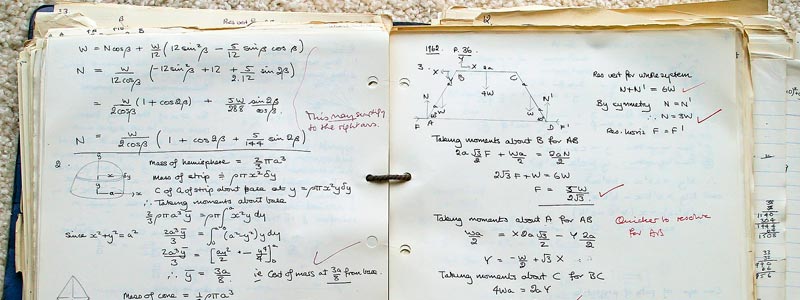 33
β
W = N cosβ + W/12 (12 sin²β - 5/12 sinβ cosβ)
N = W/12cosβ (-12 sin²β + 12 + 5/2.12 sin 2β)
= W/2cosβ (1 + cos2β) + 5W/288 sin2β/cosβ
This may simplify
to the right ans.
N = W/2cosβ (1 + cos2β + 5/144 sin 2β)
2.
Mass of hemisphere = 2/3 πρa³
Mass of strip = ρπx²δy
C of G of strip about base at y = ρπx²yδy
∴ Taking moments about base
2/3 ρπa³ȳ = ρπ∫x²y dy
Since x²+y² = a²
2a³ȳ/3 = ∫(a²-y²)y dy
2a³ȳ/3 = [a²y²/2 - y⁴/4]
∴ ȳ = 3a/8 ie C of mass at 3a/8 from base.
Mass of cone = 1/3 ρπa³
12.
1962 P. 36
3.
Y
X X 2a
B C
4W
N N'
W W
F A D F'
Res vert for whole system
N + N' = 6W
By symmetry N = N'
∴ N = 3W
Res. horiz F = F'
Taking moments about B for AB
2a√3/2 F + Wa/2 = 2aN/2
2√3 F + W = 6W
F = 5W/2√3
Quicker to resolve
for AB
Taking moments about A for AB
Wa/2 = X2a√3/2 - Y2a/2
Y = -W/2 + √3 X
Taking moments about C for BC
4Wa = 2aY